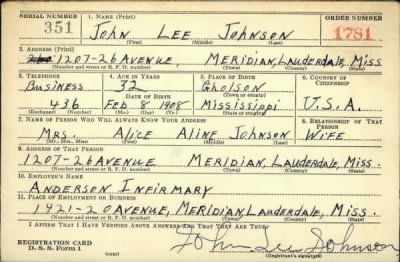 SERIAL NUMBER 1. NAME (Print) ORDER NUMBER
351 JOHN LEE JOHNSON 1781
(First) (Middle) (Last)
2. ADDRESS (Print)
1207-26 AVENUE, MERIDIAN, LAUDERDALE, MISS.
(Number and street or R. F. D. number) (Town) (County) (State)
3. TELEPHONE 4. AGE IN YEARS 5. PLACE OF BIRTH 6. COUNTRY OF CITIZENSHIP
BUSINESS 32 GHOLSON
DATE OF BIRTH (Town or county)
436 FEB 8 1908 MISSISSIPPI U.S.A.
(Exchange) (Number) (Mo.) (Day) (Yr.) (State or country)
7. NAME OF PERSON WHO WILL ALWAYS KNOW YOUR ADDRESS 8. RELATIONSHIP OF THAT PERSON
MRS. ALICE ALINE JOHNSON WIFE
(Mr., Mrs., Miss) (First) (Middle) (Last)
9. ADDRESS OF THAT PERSON
1207-26 AVENUE MERIDIAN, LAUDERDALE, MISS.
(Number and street or R. F. D. number) (Town) (County) (State)
10. EMPLOYER'S NAME
ANDERSON INFIRMARY
11. PLACE OF EMPLOYMENT OR BUSINESS
1421-20 AVENUE, MERIDIAN, LAUDERDALE, MISS.
(Number and street or R. F. D. number) (Town) (County) (State)
I AFFIRM THAT I HAVE VERIFIED ABOVE ANSWERS AND THAT THEY ARE TRUE.
REGISTRATION CARD John Lee Johnson
D. S. S. Form 1 (over) (Registrant's signature)